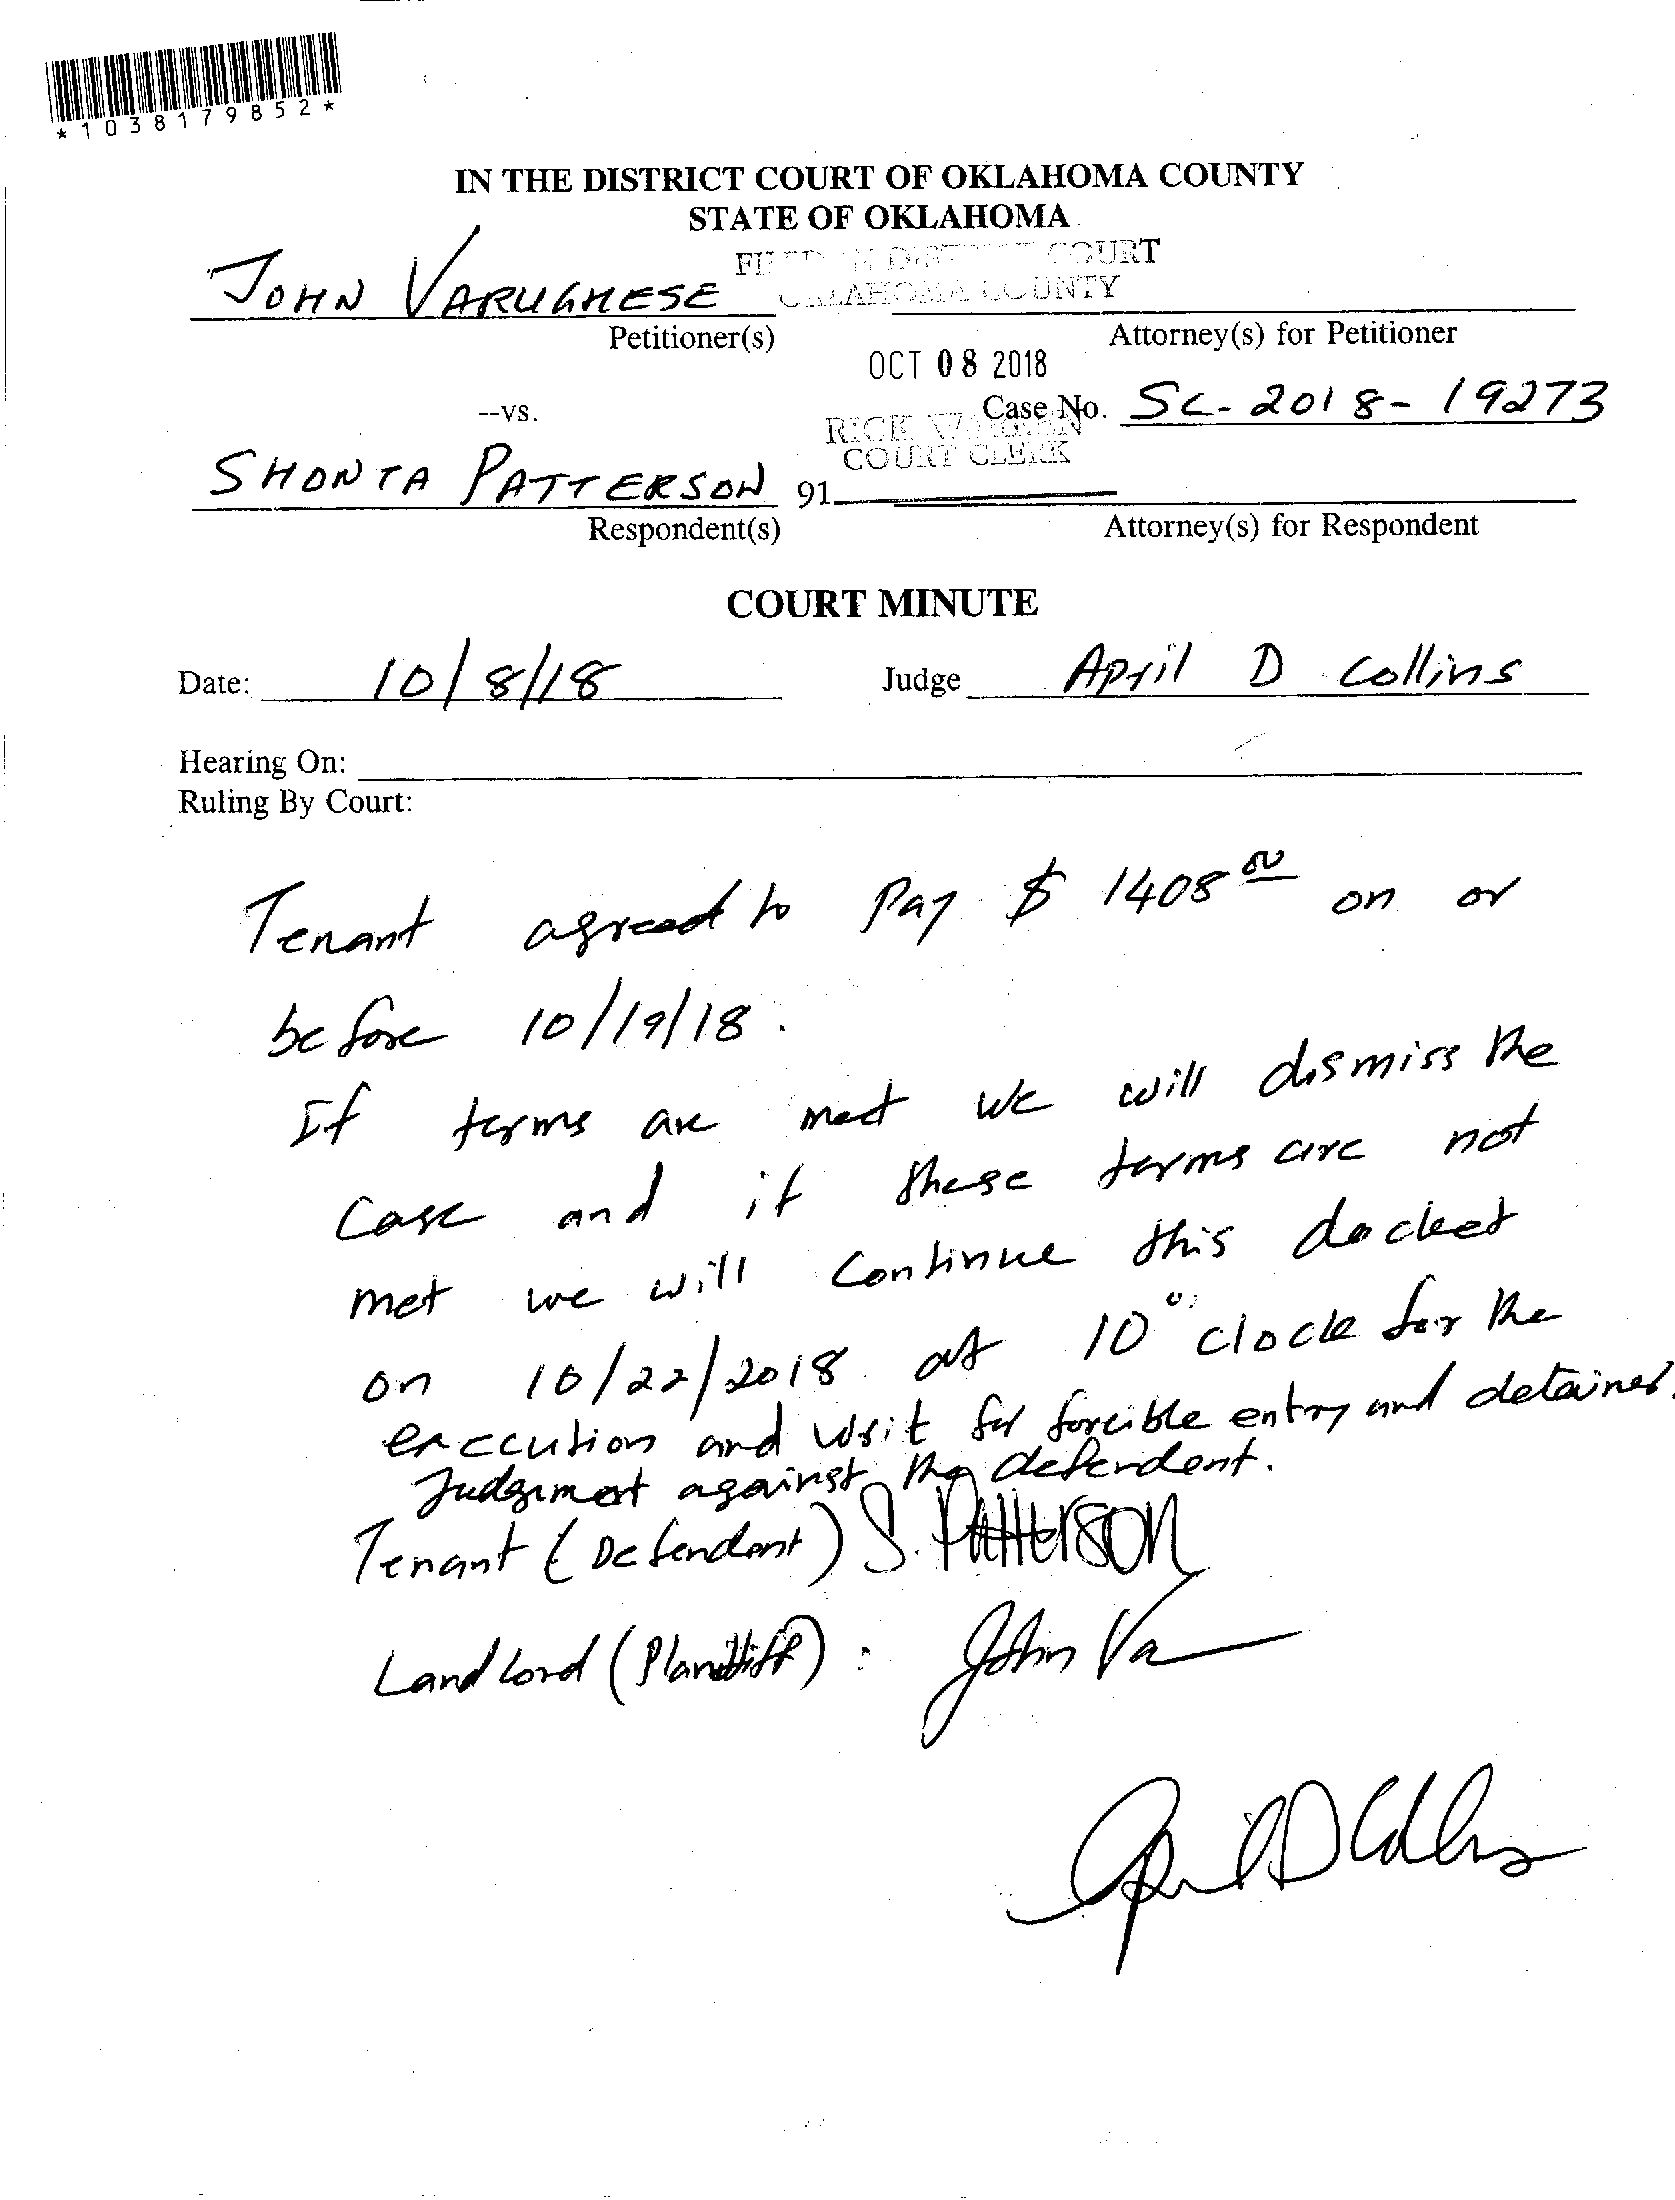 *1038179852*
IN THE DISTRICT COURT OF OKLAHOMA COUNTY
STATE OF OKLAHOMA
FILED IN DISTRICT COURT
OKLAHOMA COUNTY
JOHN VARUGHESE
Petitioner(s)
Attorney(s) for Petitioner
OCT 08 2018
--vs.
Case No. SC-2018-19273
RICK WARREN
COURT CLERK
SHONTA PATTERSON
91
Respondent(s)
Attorney(s) for Respondent
COURT MINUTE
Date: 10/8/18
Judge April D Collins
Hearing On:
Ruling By Court:
Tenant agreed to Pay $ 1408 00 on or
before 10/19/18.
If terms are met we will dismiss the
Case and if these terms are not
met we will continue this docket
on 10/22/2018 at 10 o'clock for the
execution and writ for forcible entry and detainer.
Judgement against the defendent.
Tenant (Defendant) S. Patterson
Landlord (Plantiff) : John Va
April D Collins